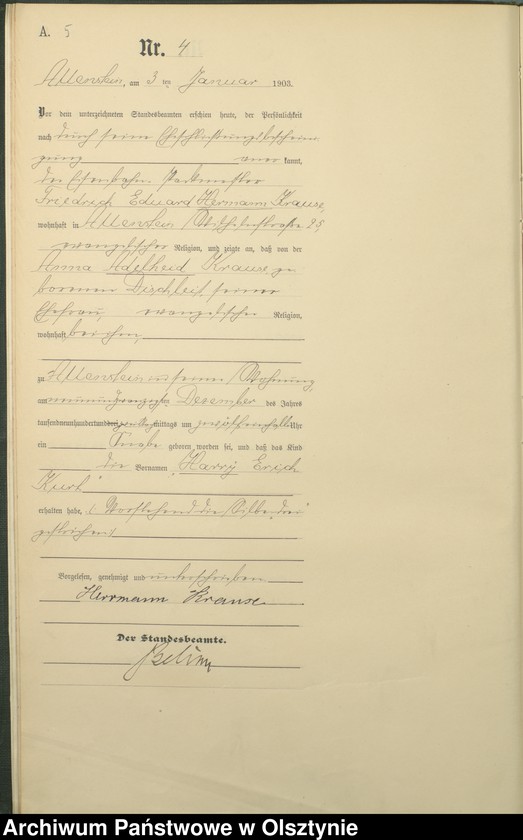 A. 5
Nr. 4
Allenstein, am 3 ten Januar 1903.
Vor dem unterzeichneten Standesbeamten erschien heute, der Persönlichkeit
nach durch seine Eheschließungsbeschei-
nigung anerkannt,
der Eisenbahn Packmeister
Friedrich Eduard Hermann Krause,
wohnhaft in Allenstein, Wilhelmstraße 23
evangelischer Religion, und zeigte an, daß von der
Anna Adelheid Krause ge-
borenen Dischleit, seiner
Ehefrau, evangelischer Religion,
wohnhaft bei ihm,
zu Allenstein in seiner Wohnung
am neunundzwanzigsten Dezember des Jahres
tausendneunhundertund mittags um zwölfeinhalb Uhr
ein Knabe geboren worden sei, und daß das Kind
die Vornamen Harry Erich
Kurt
erhalten habe. (Vorstehend die Silbe „drei"
gestrichen)
Vorgelesen, genehmigt und unterschrieben
Herrmann Krause
Der Standesbeamte.
Archiwum Państwowe w Olsztynie